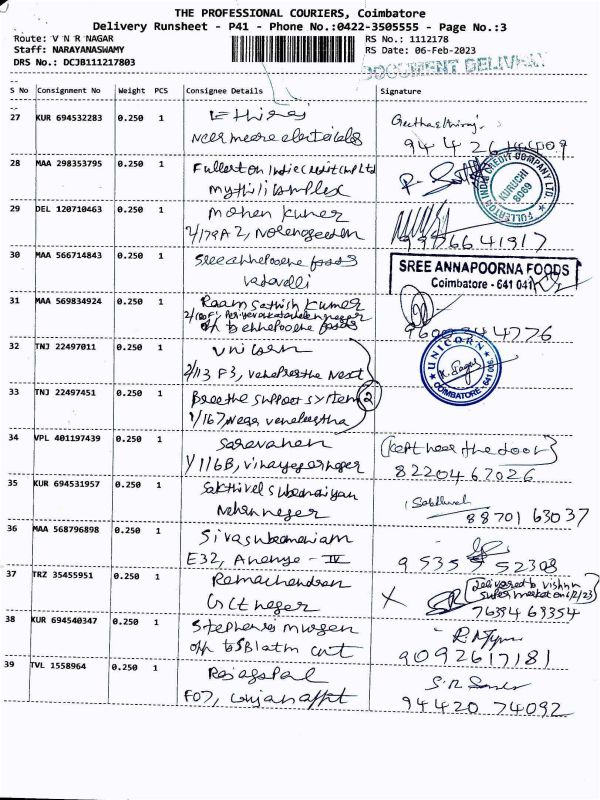 THE PROFESSIONAL COURIERS, Coimbatore
Delivery Runsheet - P41 - Phone No.:0422-3505555 - Page No.:3
Route: V N R NAGAR
RS No.: 1112178
Staff: NARAYANASWAMY
RS Date: 06-Feb-2023
DRS No.: DCJB111217803
DOCUMENT DELIVERY
S No Consignment No Weight PCS Consignee Details Signature
27 KUR 694532283 0.250 1
28 MAA 298353795 0.250 1 Fullerton India Credit Cmp Ltd
mythili complex
FULLERTON INDIA CREDIT COMPANY LTD.
KURUCHI
8069
29 DEL 120710463 0.250 1 mohan kumar
2/179A2,
30 MAA 566714843 0.250 1 Sree annapoorna foods
vadavalli
SREE ANNAPOORNA FOODS
Coimbatore - 641 041
31 MAA 569834924 0.250 1 Raam Sathish Kumar
opp to annapoorna foods
32 TNJ 22497011 0.250 1 unicorn
2/13 F3,
UNICORN
COIMBATORE - 641
33 TNJ 22497451 0.250 1 Breathe support system
1/167, near
2
34 VPL 401197439 0.250 1 Saravanan
1/116B,
(Kept near the door)
82204 67026
35 KUR 694531957 0.250 1 Sakthivel Subramaniyan
Nehru nagar
88701 63037
36 MAA 568796898 0.250 1 Sivasubramaniam
E32, Ananya - IV
95355 52308
37 TRZ 35455951 0.250 1 Ramachandran
GCT nagar
X
Delivered to vishnu
super market on 6/2/23
76394 63354
38 KUR 694540347 0.250 1 Stephen murgan
9092617181
39 TVL 1558964 0.250 1 Rajagopal
F07, Gunjan appt
94420 74092